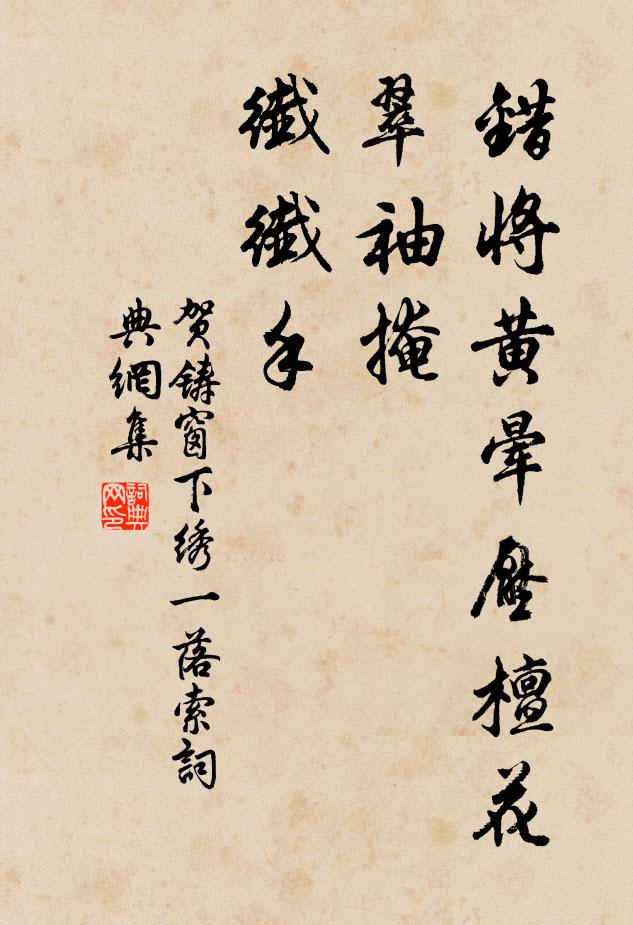 錯將黄暈壓檀花
翠袖掩
纖纖手
贺鑄窗下绣一落索詞
典網集
詞典网印